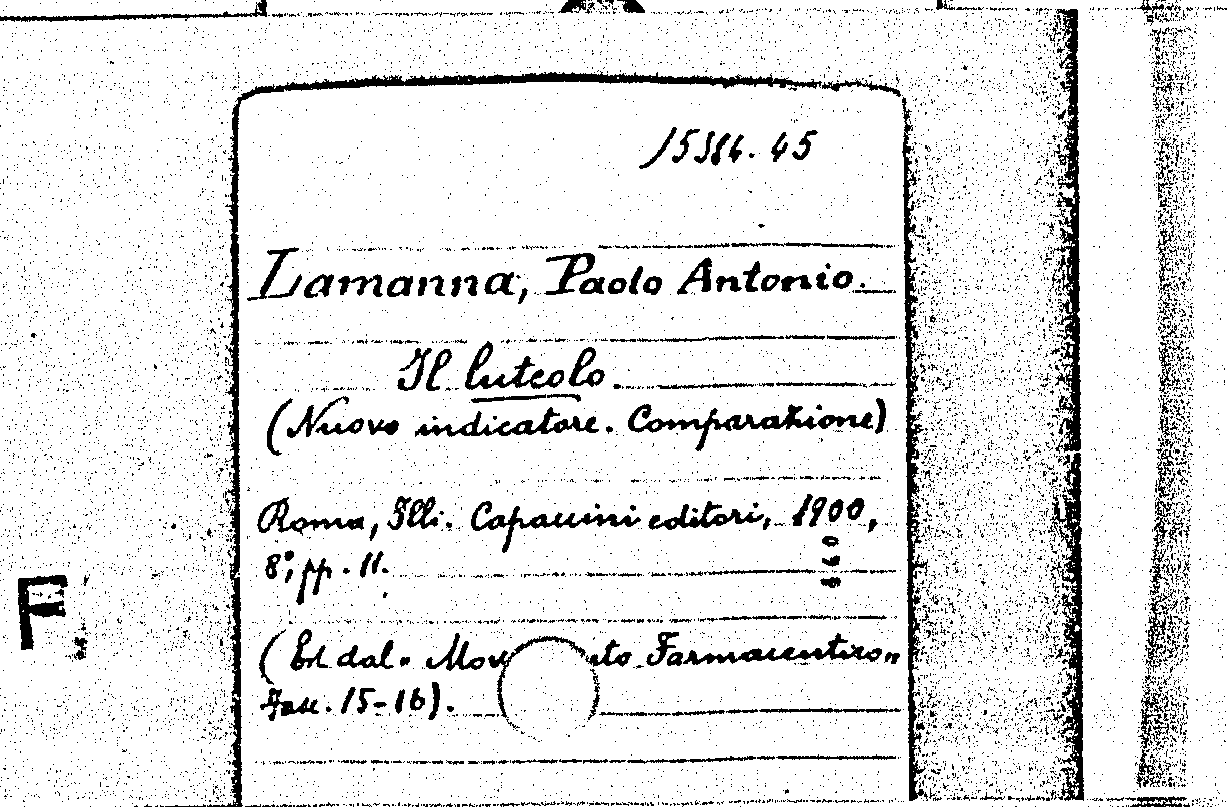 15386. 45
Lamanna, Paolo Antonio.
Il luteolo.
(Nuovo indicatore. Comparazione)
Roma, Flli. Capaccini editori, 1900,
8°, pp. 11.
(Est. dal " Mov to Farmaceutico"
Fasc. 15-16).
F